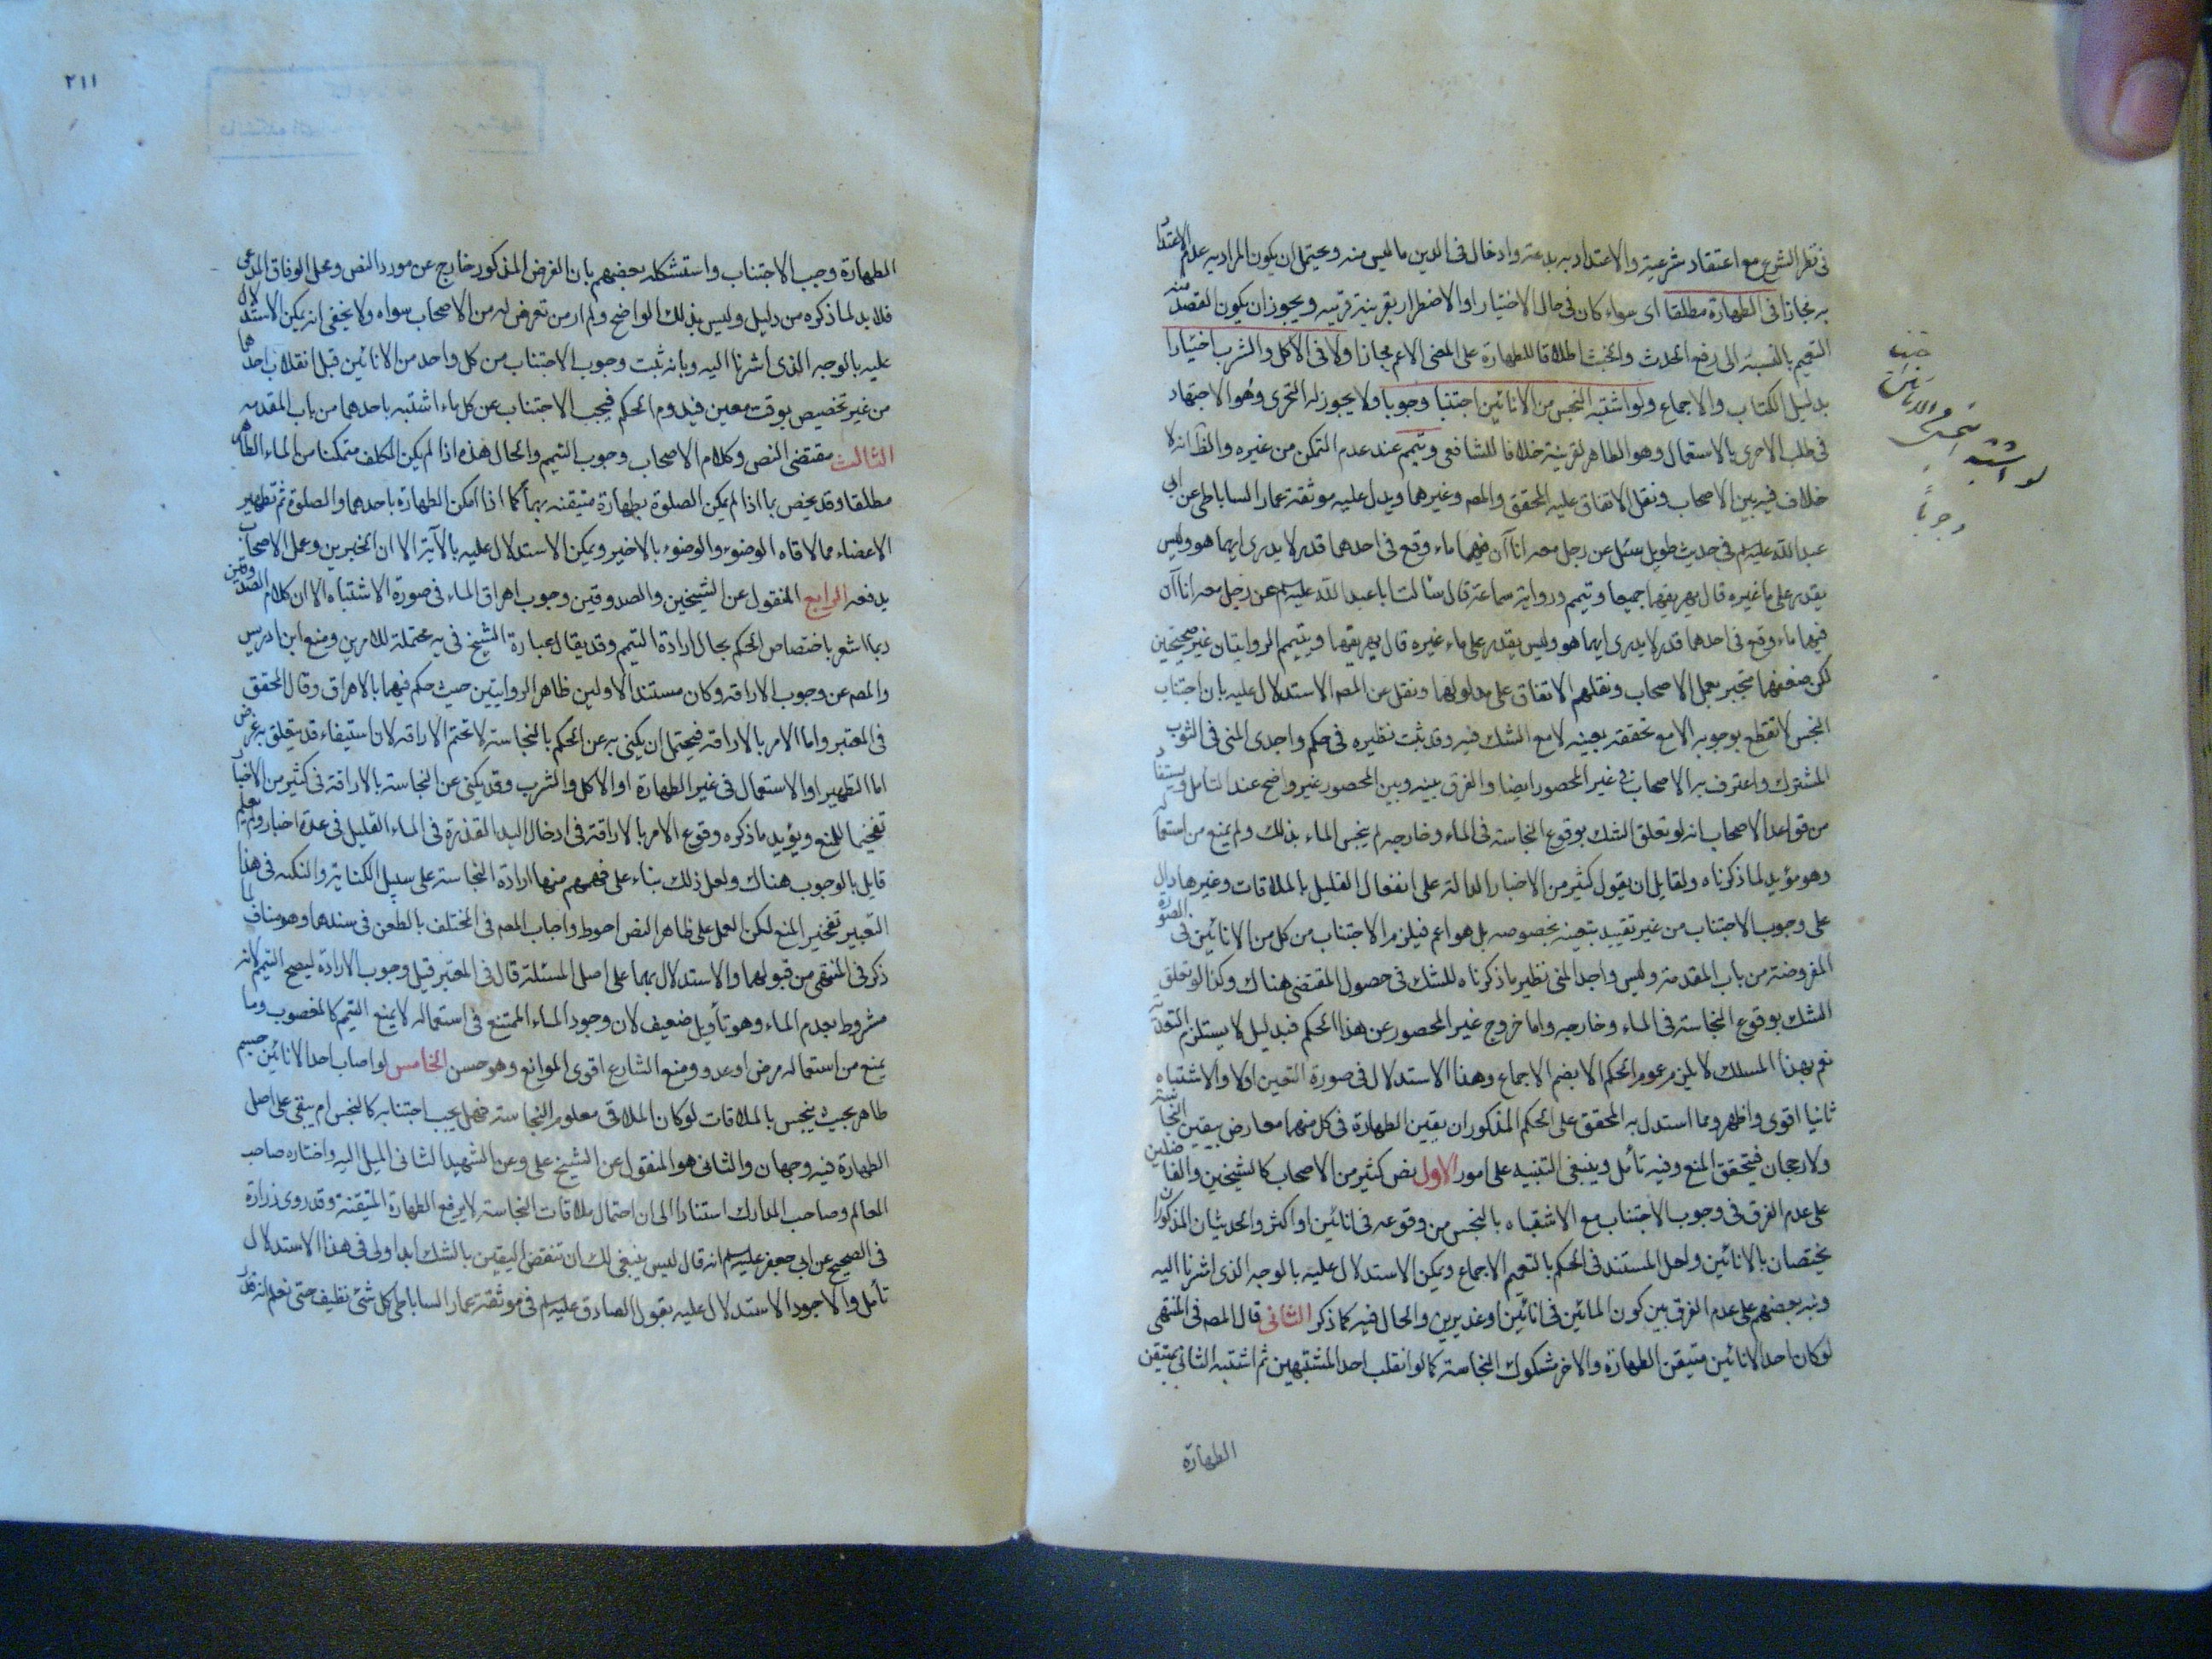 فى نظر الشرع مع اعتقاد شرعيته والاعتداد به بدعة وادخال فى الدين ما ليس منه ويحتمل ان يكون المراد به عدم الاعتداد
به مجازا فى الطهارة مطلقا اى سواء كان فى حال الاختيار او الاضطرار بقرينة قربته ويجوز ان يكون القصد منه
التعميم بالنسبة الى رفع الحدث والخبث اطلاقا للطهارة على المعنى الاعم مجازا ولا فى الاكل والشرب اختيارا
بدليل الكتاب والاجماع ولو اشتبه النجس من الانائين اجتنبا وجوبا ولا يجوز له التحرى وهو الاجتهاد
فى طلب الاحرى بالاستعمال وهو الطاهر لقرينة خلافا للشافعى وتيمم عند عدم التمكن من غيره والظ انه لا
خلاف فيه بين الاصحاب ونقل الاتفاق عليه المحقق والمص وغيرهما ويدل عليه موثقة عمار الساباطى عن ابى
عبد الله عليه السلام فى حديث طويل سئل عن رجل معه اناآن فيهما ماء وقع فى احدهما قذر لا يدرى ايهما هو وليس
يقدر على ما غيره قال يهريقهما جميعا ويتيمم ورواية سماعة قال سألت ابا عبد الله عليه السلام عن رجل معه اناآن
فيهما ماء وقع فى احدهما قذر لا يدرى ايهما هو وليس يقدر على ماء غيره قال يهريقهما ويتيمم الروايتان غير صحيحتين
لكن ضعفهما منجبر بعمل الاصحاب ونقلهم الاتفاق على مدلولهما ونقل عن المص الاستدلال عليه بان اجتناب
النجس لا نقطع بوجوبه الا مع تحققه بعينه لا مع الشك فيه وقد ثبت نظيره فى حكم واجدى المنى فى الثوب
المشترك واعترف به الاصحاب فى غير المحصور ايضا والفرق بينه وبين المحصور غير واضح عند التامل ويستفاد
من قواعد الاصحاب انه لو تعلق الشك بوقوع النجاسة فى الماء وخارجه لم ينجس الماء بذلك ولم يمنع من استعماله
وهو مؤيد لما ذكرناه ولقايل ان يقول كثير من الاخبار الدالة على انفعال القليل بالملاقات وغيرها دال
على وجوب الاجتناب من غير تقييد بتعينه بخصوصه بل هو اعم فيلزم الاجتناب من كل من الانائين فى الصورة
المفروضة من باب المقدمة وليس واجد المنى نظير ما ذكرناه للشك فى حصول المقتضى هناك وكذا لو تعلق
الشك بوقوع النجاسة فى الماء وخارجه واما خروج غير المحصور عن هذا الحكم فبدليل لا يستلزم التعدية
نعم بهذا المسلك لا يلزم عموم الحكم الا بضم الاجماع وهذا الاستدلال فى صورة التعين اولا والاشتباه
ثانيا اقوى واظهر ومما استدل به المحقق على الحكم المذكور ان يقين الطهارة فى كل منهما معارض بيقين النجاسة
ولا رجحان فيتحقق المنع وفيه تأمل وينبغى التنبيه على امور الاول نص كثير من الاصحاب كالشيخين والفاضلين
على عدم الفرق فى وجوب الاجتناب مع الاشتباه بالنجس من وقوعه فى انائين او اكثر والحديثان المذكوران
يختصان بالانائين ولعل المستند فى الحكم بالتعميم الاجماع ويمكن الاستدلال عليه بالوجه الذى اشرنا اليه
ونبه بعضهم على عدم الفرق بين كون المائين فى انائين او غديرين والحال فيه كما ذكر الثانى قال المص فى المنتهى
لو كان احد الانائين متيقن الطهارة والاخر مشكوك النجاسة كما لو انقلب احد المشتبهين ثم اشتبه الثانى بمتيقن
الطهارة
لو اشتبه النجس من الانائين
وجوباً
٢١١
الطهارة وجب الاجتناب واستشكله بعضهم بان الفرض المذكور خارج عن مورد النص ومحل الوفاق المدعى
فلا بد لما ذكره من دليل وليس بذلك الواضح ولم ار من تعرض له من الاصحاب سواه ولا يخفى انه يمكن الاستدلال
عليه بالوجه الذى اشرنا اليه وبانه ثبت وجوب الاجتناب من كل واحد من الانائين قبل انقلاب احدهما
من غير تخصيص بوقت معين فيدوم الحكم فيجب الاجتناب عن كل ماء اشتبه باحدهما من باب المقدمه
الثالث مقتضى النص وكلام الاصحاب وجوب التيمم والحال هذه اذا لم يكن المكلف متمكنا من الماء الطاهر
مطلقا وقد يخص بما اذا لم يمكن الصلوة بطهارة متيقنه بهما كما اذا امكن الطهارة باحدهما والصلوة ثم تطهير
الاعضاء مما لاقاه الوضوء والوضوء بالاخير ويمكن الاستدلال عليه بالآية الا ان الخبرين وعمل الاصحاب
يدفعه الرابع المنقول عن الشيخين والصدوقين وجوب اهراق الماء فى صورة الاشتباه الا ان كلام الصدوقين
ربما اشعر باختصاص الحكم بحال ارادة التيمم وقد يقال عبارة الشيخ فى يه محتملة للامرين ومنع ابن ادريس
والمص عن وجوب الاراقه وكان مستند الاولين ظاهر الروايتين حيث حكم فيهما بالاهراق وقال المحقق
فى المعتبر واما الامر بالاراقة فيحتمل ان يكنى به عن الحكم بالنجاسة لا تحتم الاراقه لان استيفاءه قد يتعلق به غرض
اما التطهير او الاستعمال فى غير الطهارة او الاكل والشرب وقد يكنى عن النجاسة بالاراقة فى كثير من الاخبار
تفخيما للمنع ويؤيد ما ذكره وقوع الامر بالاراقة فى ادخال اليد القذرة فى الماء القليل فى عدة اخبار ولم يعلم
قايل بالوجوب هناك ولعل ذلك بناء على فهمهم منها ارادة النجاسة على سبيل الكناية والنكته فى هذا
التعبير تفخيم المنع لكن العمل على ظاهر النص احوط واجاب المص فى المختلف بالطعن فى سندهما وهو مناف لما
ذكر فى المنتهى من قبولهما والاستدلال بهما على اصل المسئلة قال فى المعتبر قيل وجوب الاراقة ليصح التيمم لانه
مشروط بعدم الماء وهو تأويل ضعيف لان وجود الماء الممتنع فى استعماله لا يمنع التيمم كالمغصوب وما
يمنع من استعماله مرض او عدو ومنع الشارع اقوى الموانع وهو حسن الخامس لو اصاب احد الانائين جسم
طاهر بحيث ينجس بالملاقات لو كان الملاقى معلوم النجاسة فهل يجب اجتنابه كالنجس ام يبقى على اصل
الطهارة فيه وجهان والثانى هو المنقول عن الشيخ على وعن الشهيد الثانى الميل اليه واختاره صاحب
المعالم وصاحب المدارك استنادا الى ان احتمال ملاقات النجاسة لا يرفع الطهارة المتيقنة وقد روى زرارة
فى الصحيح عن ابى جعفر عليه السلام انه قال ليس ينبغى لك ان تنقض اليقين بالشك ابدا ولى فى هذا الاستدلال
تأمل والاجود الاستدلال عليه بقول الصادق عليه السلام فى موثقة عمار الساباطى كل شئ نظيف حتى تعلم انه قذر